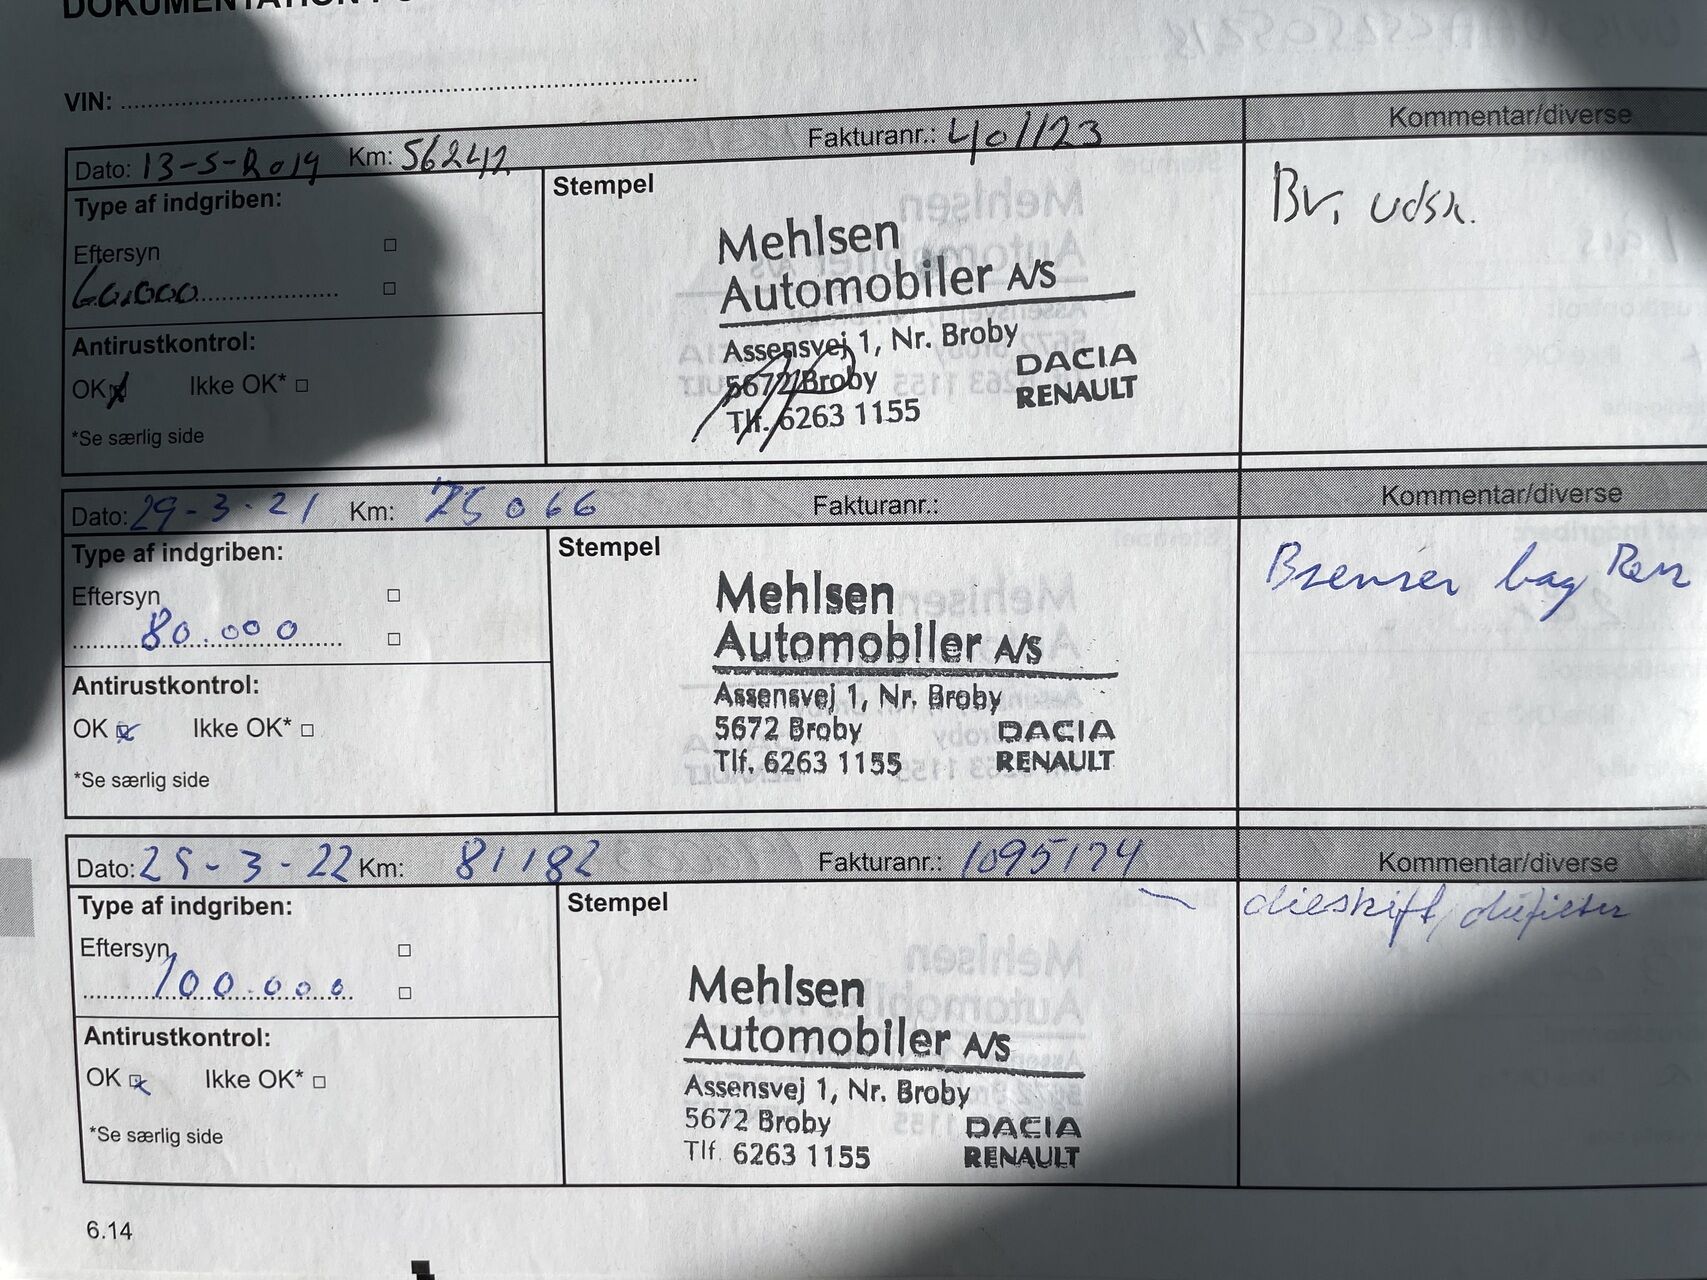 VIN:
Dato: 13-5-2019 Km: 56242 Fakturanr.: 401123 Kommentar/diverse
Type af indgriben: Stempel Br. udsk.
Eftersyn
60.000
Antirustkontrol:
OK Ikke OK*
*Se særlig side
Mehlsen
Automobiler A/S
Assensvej 1, Nr. Broby
5672 Broby
Tlf. 6263 1155
DACIA
RENAULT
Dato: 29-3-21 Km: 75066 Fakturanr.: Kommentar/diverse
Type af indgriben: Stempel bag
Eftersyn
80.000
Antirustkontrol:
OK Ikke OK*
*Se særlig side
Mehlsen
Automobiler A/S
Assensvej 1, Nr. Broby
5672 Broby
Tlf. 6263 1155
DACIA
RENAULT
Dato: 25-3-22 Km: 81182 Fakturanr.: 1095174 Kommentar/diverse
Type af indgriben: Stempel
Eftersyn
100.000
Antirustkontrol:
OK Ikke OK*
*Se særlig side
Mehlsen
Automobiler A/S
Assensvej 1, Nr. Broby
5672 Broby
Tlf. 6263 1155
DACIA
RENAULT
6.14